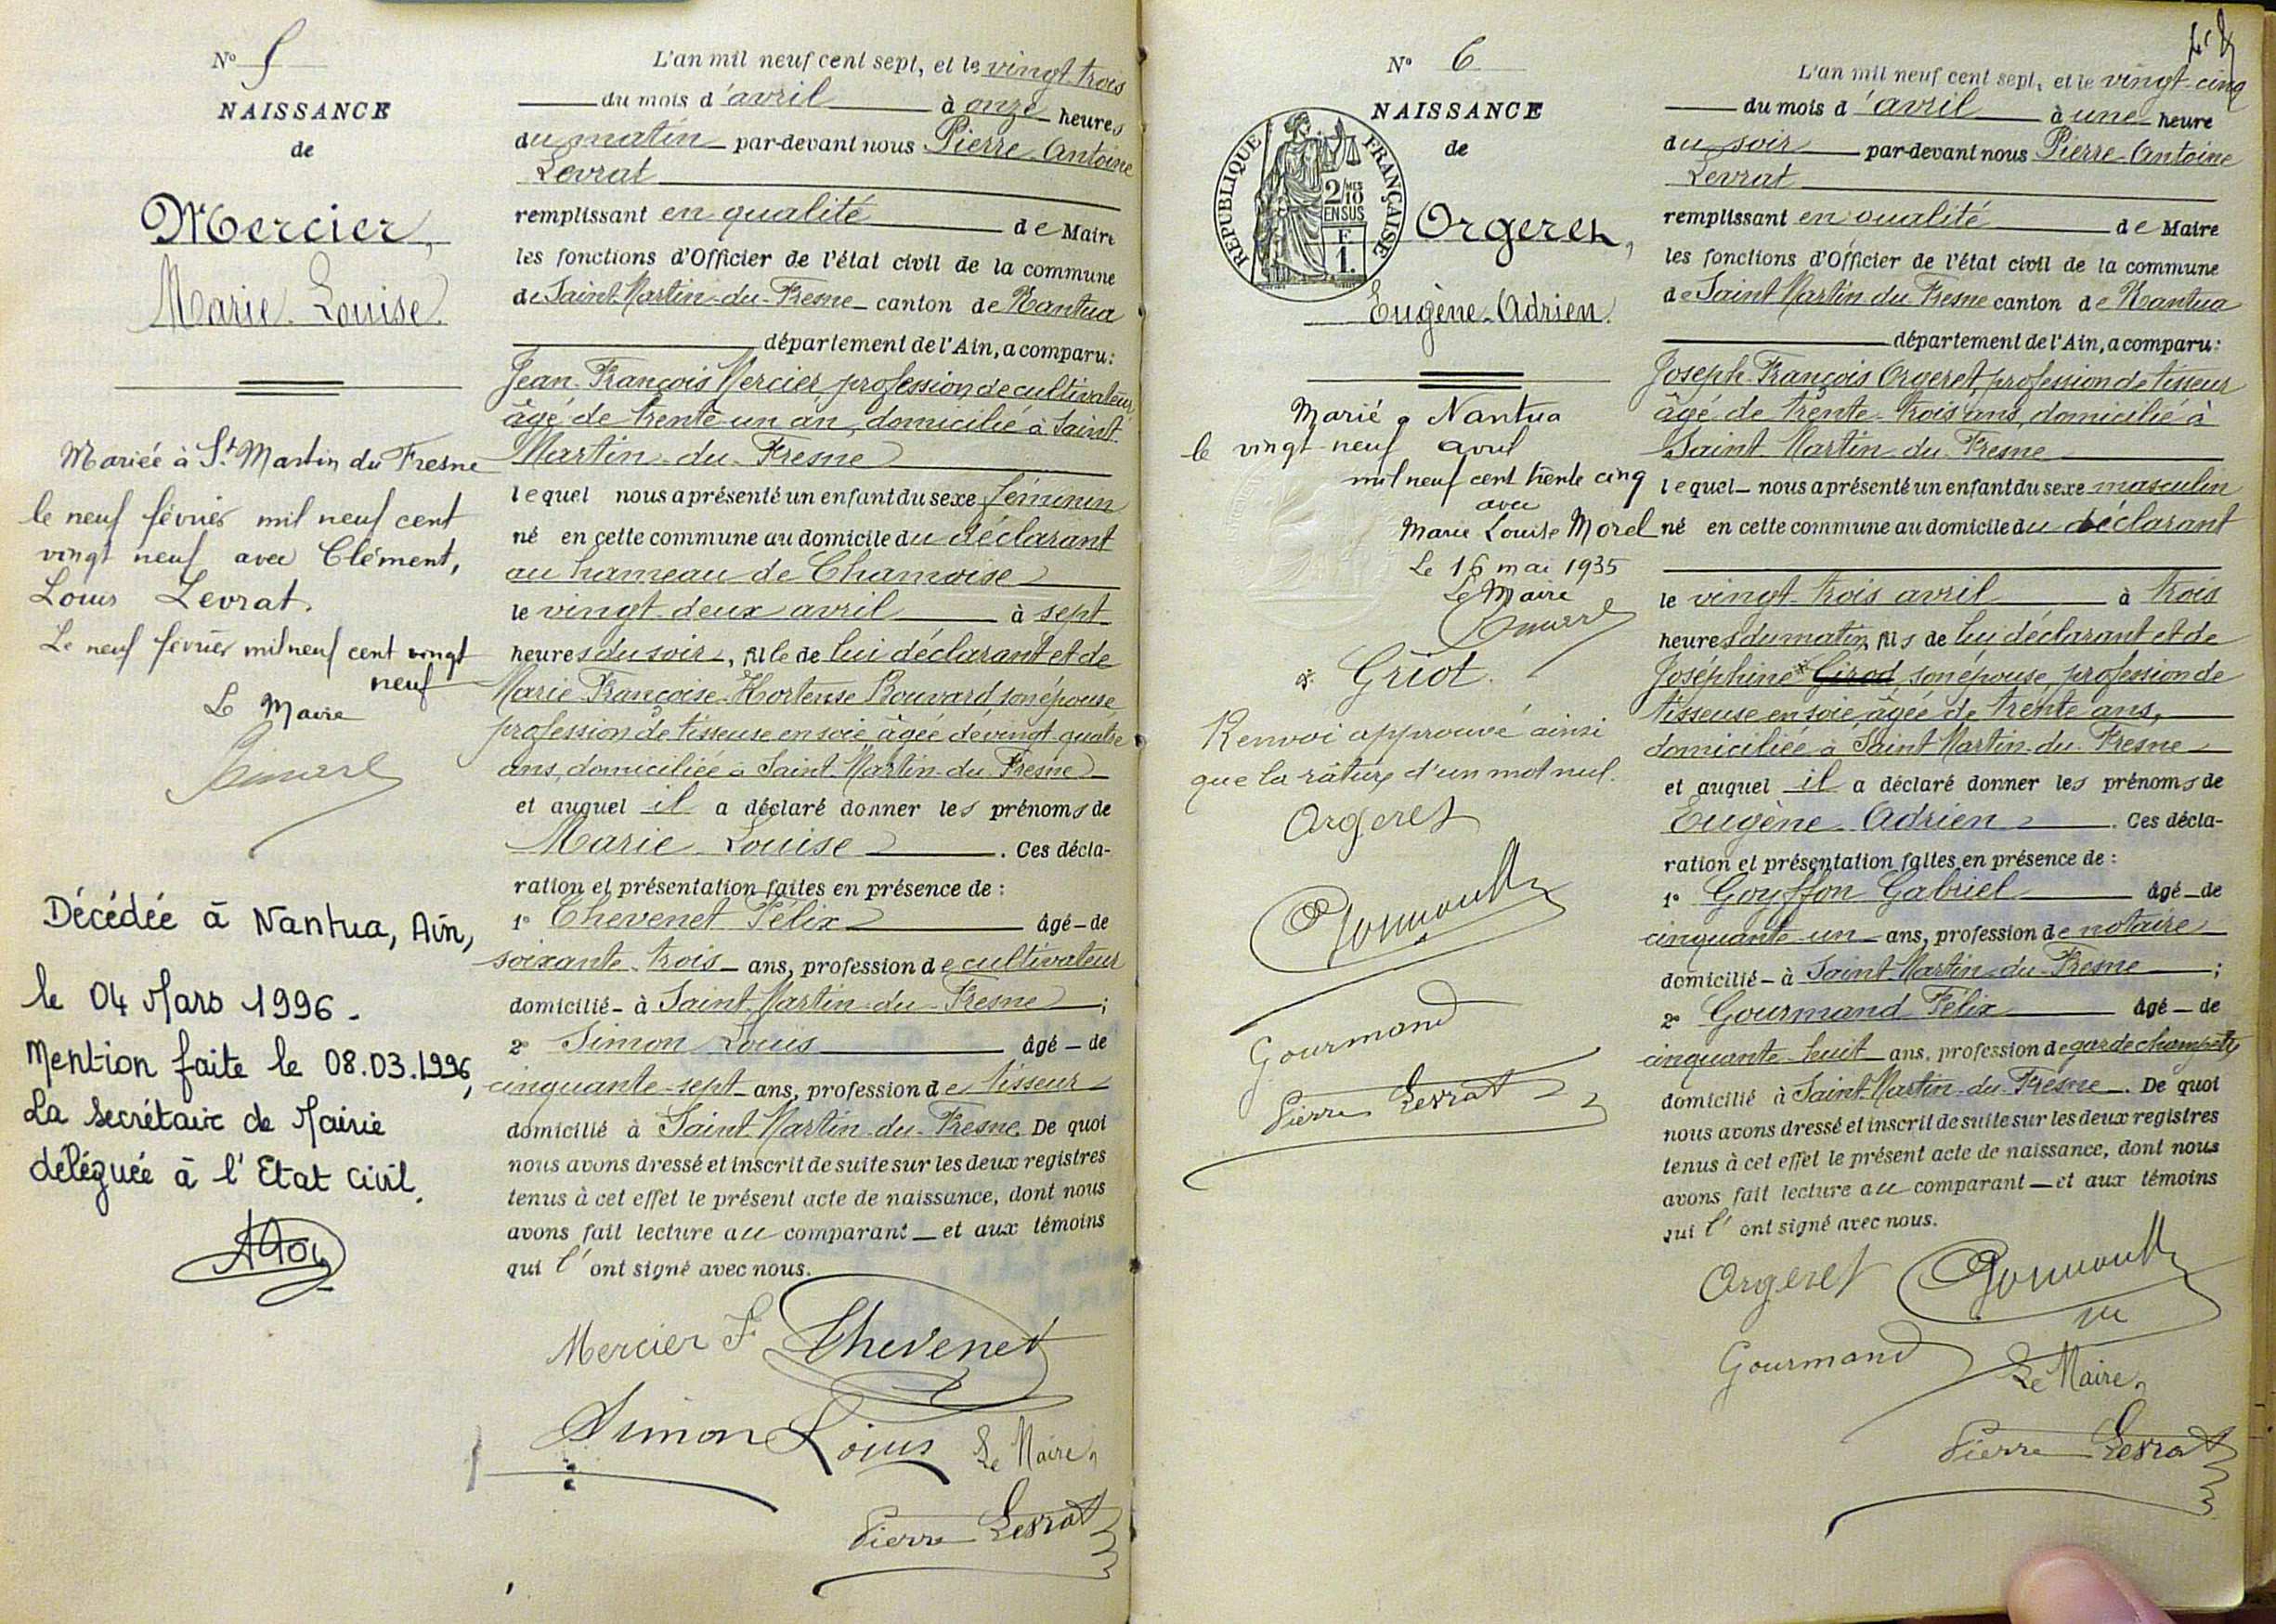 N° 5
NAISSANCE
de
Mercier,
Marie Louise.
Mariée à St Martin du Fresne
le neuf février mil neuf cent
vingt neuf avec Clément,
Louis Levrat.
Le neuf février mil neuf cent vingt
neuf
Le Maire
Décédée à Nantua, Ain,
le 04 Mars 1996.
Mention faite le 08.03.1996,
La Secrétaire de Mairie
déléguée à l'Etat Civil.
L'an mil neuf cent sept, et le vingt-trois
du mois d'avril à onze heures
du matin par-devant nous Pierre-Antoine
Levrat
remplissant en qualité de Maire
les fonctions d'Officier de l'état civil de la commune
de Saint-Martin-du-Fresne canton de Nantua
département de l'Ain, a comparu:
Jean-François Mercier, profession de cultivateur,
âgé de trente-un an, domicilié à Saint-
Martin-du-Fresne
lequel nous a présenté un enfant du sexe féminin
né en cette commune au domicile du déclarant
au hameau de Chamoise
le vingt-deux avril à sept
heures du soir, fille de lui déclarant et de
Marie Françoise-Hortense Bouvard, son épouse
profession de tisseuse en soie âgée de vingt-quatre
ans, domiciliée à Saint-Martin-du-Fresne
et auquel il a déclaré donner les prénoms de
Marie-Louise. Ces décla-
ration et présentation faites en présence de :
1° Chevenet Félix âgé de
soixante-trois ans, profession de cultivateur
domicilié à Saint-Martin-du-Fresne ;
2° Simon Louis âgé de
cinquante-sept ans, profession de tisseur
domicilié à Saint-Martin-du-Fresne. De quoi
nous avons dressé et inscrit de suite sur les deux registres
tenus à cet effet le présent acte de naissance, dont nous
avons fait lecture au comparant et aux témoins
qui l'ont signé avec nous.
Mercier F Chevenet
Simon Louis Le Maire,
Pierre Levrat
N° 6
NAISSANCE
de
RÉPUBLIQUE FRANÇAISE
2/MES
10
EN SUS
F.
1.
Orgeret,
Eugène-Adrien.
Marié à Nantua
le vingt-neuf avril
mil neuf cent trente cinq
avec
Marie Louise Morel
Le 16 mai 1935
Le Maire
* Griot.
Renvoi approuvé ainsi
que la râture d'un mot nul.
Orgeret
Gourmand
Pierre Levrat
L'an mil neuf cent sept, et le vingt-cinq
du mois d'avril à une heure
du soir par-devant nous Pierre-Antoine
Levrat
remplissant en qualité de Maire
les fonctions d'Officier de l'état civil de la commune
de Saint Martin du Fresne canton de Nantua
département de l'Ain, a comparu:
Joseph-François Orgeret, profession de tisseur
âgé de trente-trois ans, domicilié à
Saint-Martin-du-Fresne
lequel nous a présenté un enfant du sexe masculin
né en cette commune au domicile du déclarant
le vingt-trois avril à trois
heures du matin, fils de lui déclarant et de
Joséphine * Girod son épouse, profession de
tisseuse en soie, âgée de trente ans,
domiciliée à Saint-Martin-du-Fresne
et auquel il a déclaré donner les prénoms de
Eugène-Adrien. Ces décla-
ration et présentation faites en présence de :
1° Goyffon Gabriel âgé de
cinquante-un ans, profession de notaire
domicilié à Saint-Martin-du-Fresne ;
2° Gourmand Félix âgé de
cinquante-huit ans, profession de garde champêtre
domicilié à Saint-Martin-du-Fresne. De quoi
nous avons dressé et inscrit de suite sur les deux registres
tenus à cet effet le présent acte de naissance, dont nous
avons fait lecture au comparant et aux témoins
qui l'ont signé avec nous.
Orgeret
Gourmand
Le Maire,
Pierre Levrat